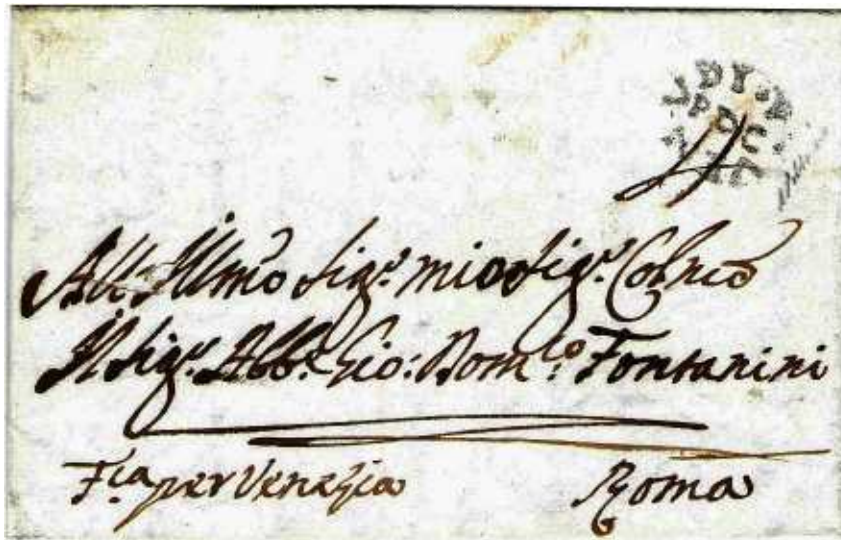 4
All Illmo Sigr. mio Sigr. Colmo
Il Sigr. Abbe. Gio: Domco: Fontanini
Fca per Venezia Roma